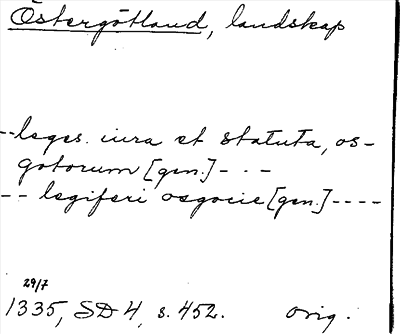 Östergötland, landskap
--leges. iura et statuta, os-
gotorum [gen.] - - -
-- legiferi osgocie [gen.] ----
29/7
1335, SD 4, s. 452. orig.